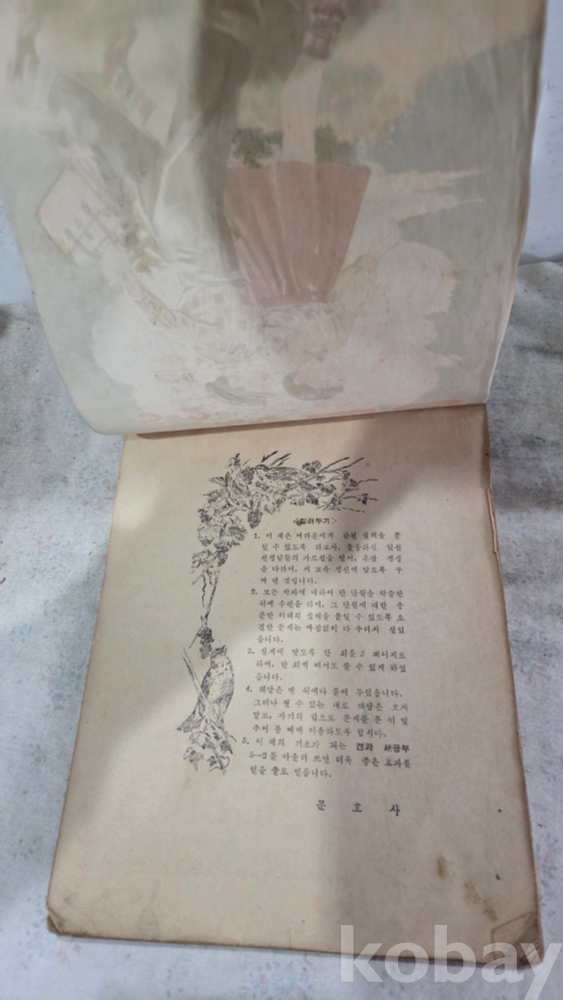 <일러두기>
1. 이 책은 여러분에게 참된 실력을 붙
일 수 있도록 하고자, 훌륭하신 일선
선생님들의 가르침을 받어, 온갖 정성
을 다하여, 새 교육 정신에 맞도록 꾸
며 낸 것입니다.
2. 모든 학과에 대하여 한 단원을 학습한
뒤에 수련을 하여, 그 단원에 대한 충
분한 이해와 실력을 붙일 수 있도록 요
긴한 문제는 빠짐없이 다 추려서 실었
습니다.
3. 실제에 맞도록 한 회를 2 페이지로
하여, 한 회씩 떼어도 쓸 수 있게 하였
습니다.
4. 해답은 맨 뒤에다 붙여 두었습니다.
그러나 될 수 있는 대로 해답은 보지
말고, 자기의 힘으로 문제를 푼 뒤 맞
추어 볼 때에 이용하도록 합시다.
5. 이 책의 기초가 되는 전과 새공부
5—2를 아울러 쓰면 더욱 좋은 효과를
얻을 줄로 믿습니다.
문 호 사
kobay